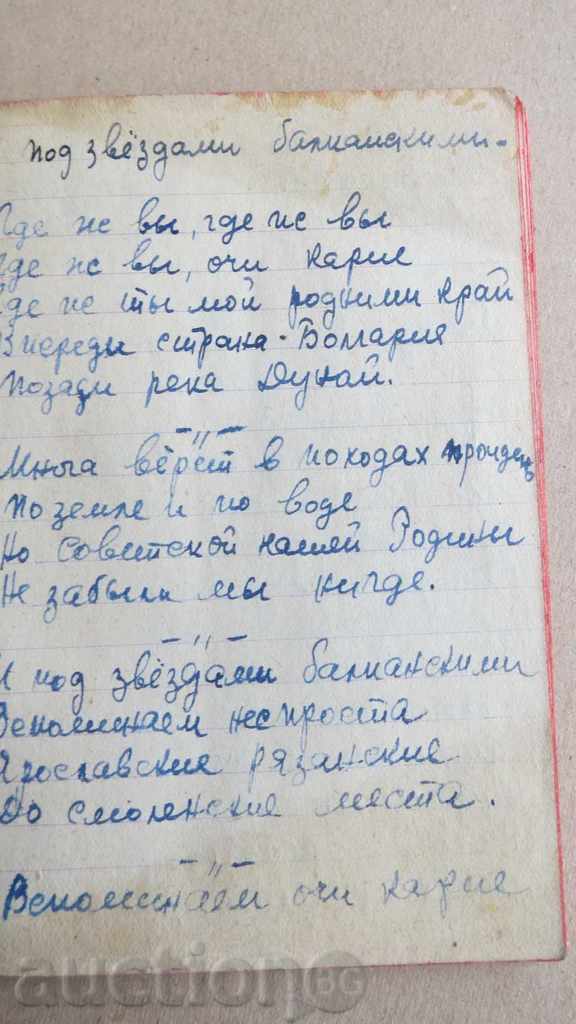 под звёздами балканскими.
Где же вы, где же вы
Где же вы, очи карие
Где же ты мой родними край
Впереди страна - Болгария
Позади река Дунай.
— " —
Много вёрст в походах пройдено
По земле и по воде
Но Советской нашей Родины
Не забыли мы нигде.
— " —
И под звёздами балканскими
Вспоминаем неспроста
Ярославские рязанские
До смоленские места.
— " —
Вспоминаем очи карие
auction BG